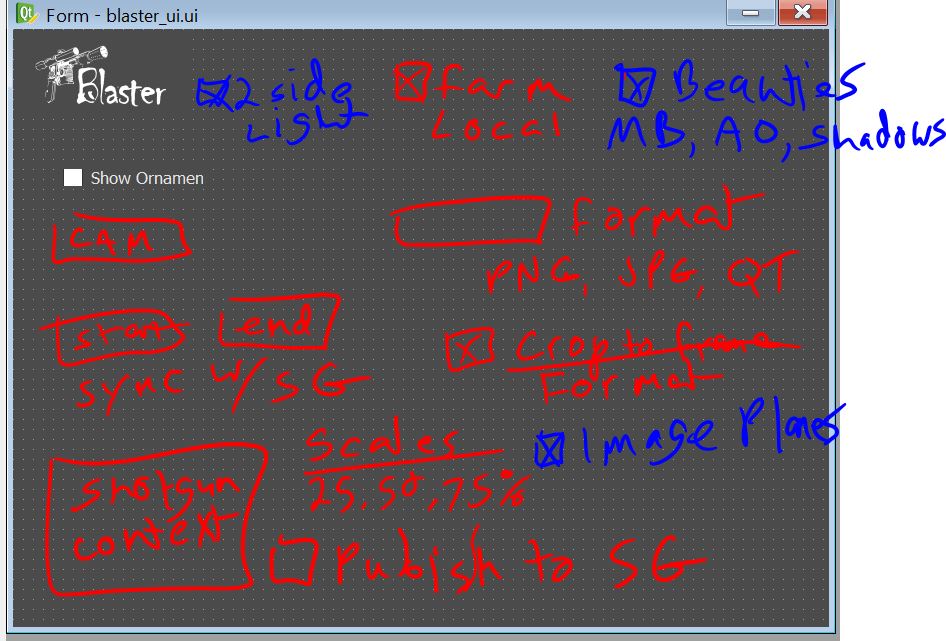 Form - blaster_ui.ui
Blaster
2 side
Light
Farm
Local
Beauties
MB, AO, shadows
Show Ornamen
CAM
format
PNG, JPG, QT
start
end
sync w/ SG
Crop to frame
Format
Scales
25, 50, 75%
Image Planes
shotgun
context
Pubish to SG